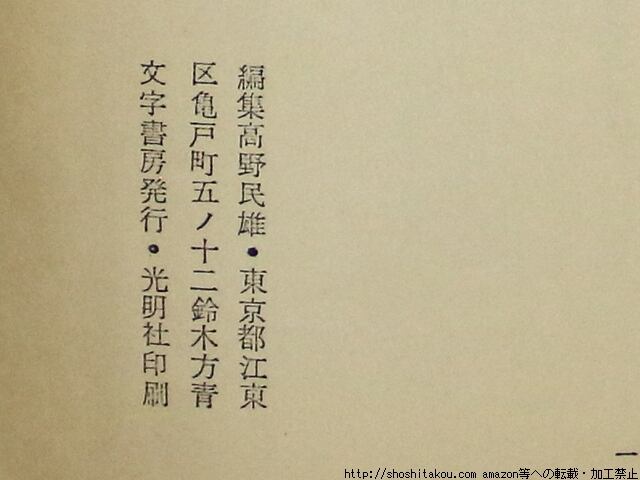 編集高野民雄・東京都江東
区亀戸町五ノ十二鈴木方青
文字書房発行・光明社印刷
一
http://shoshitakou.com amazon等への転載・加工禁止